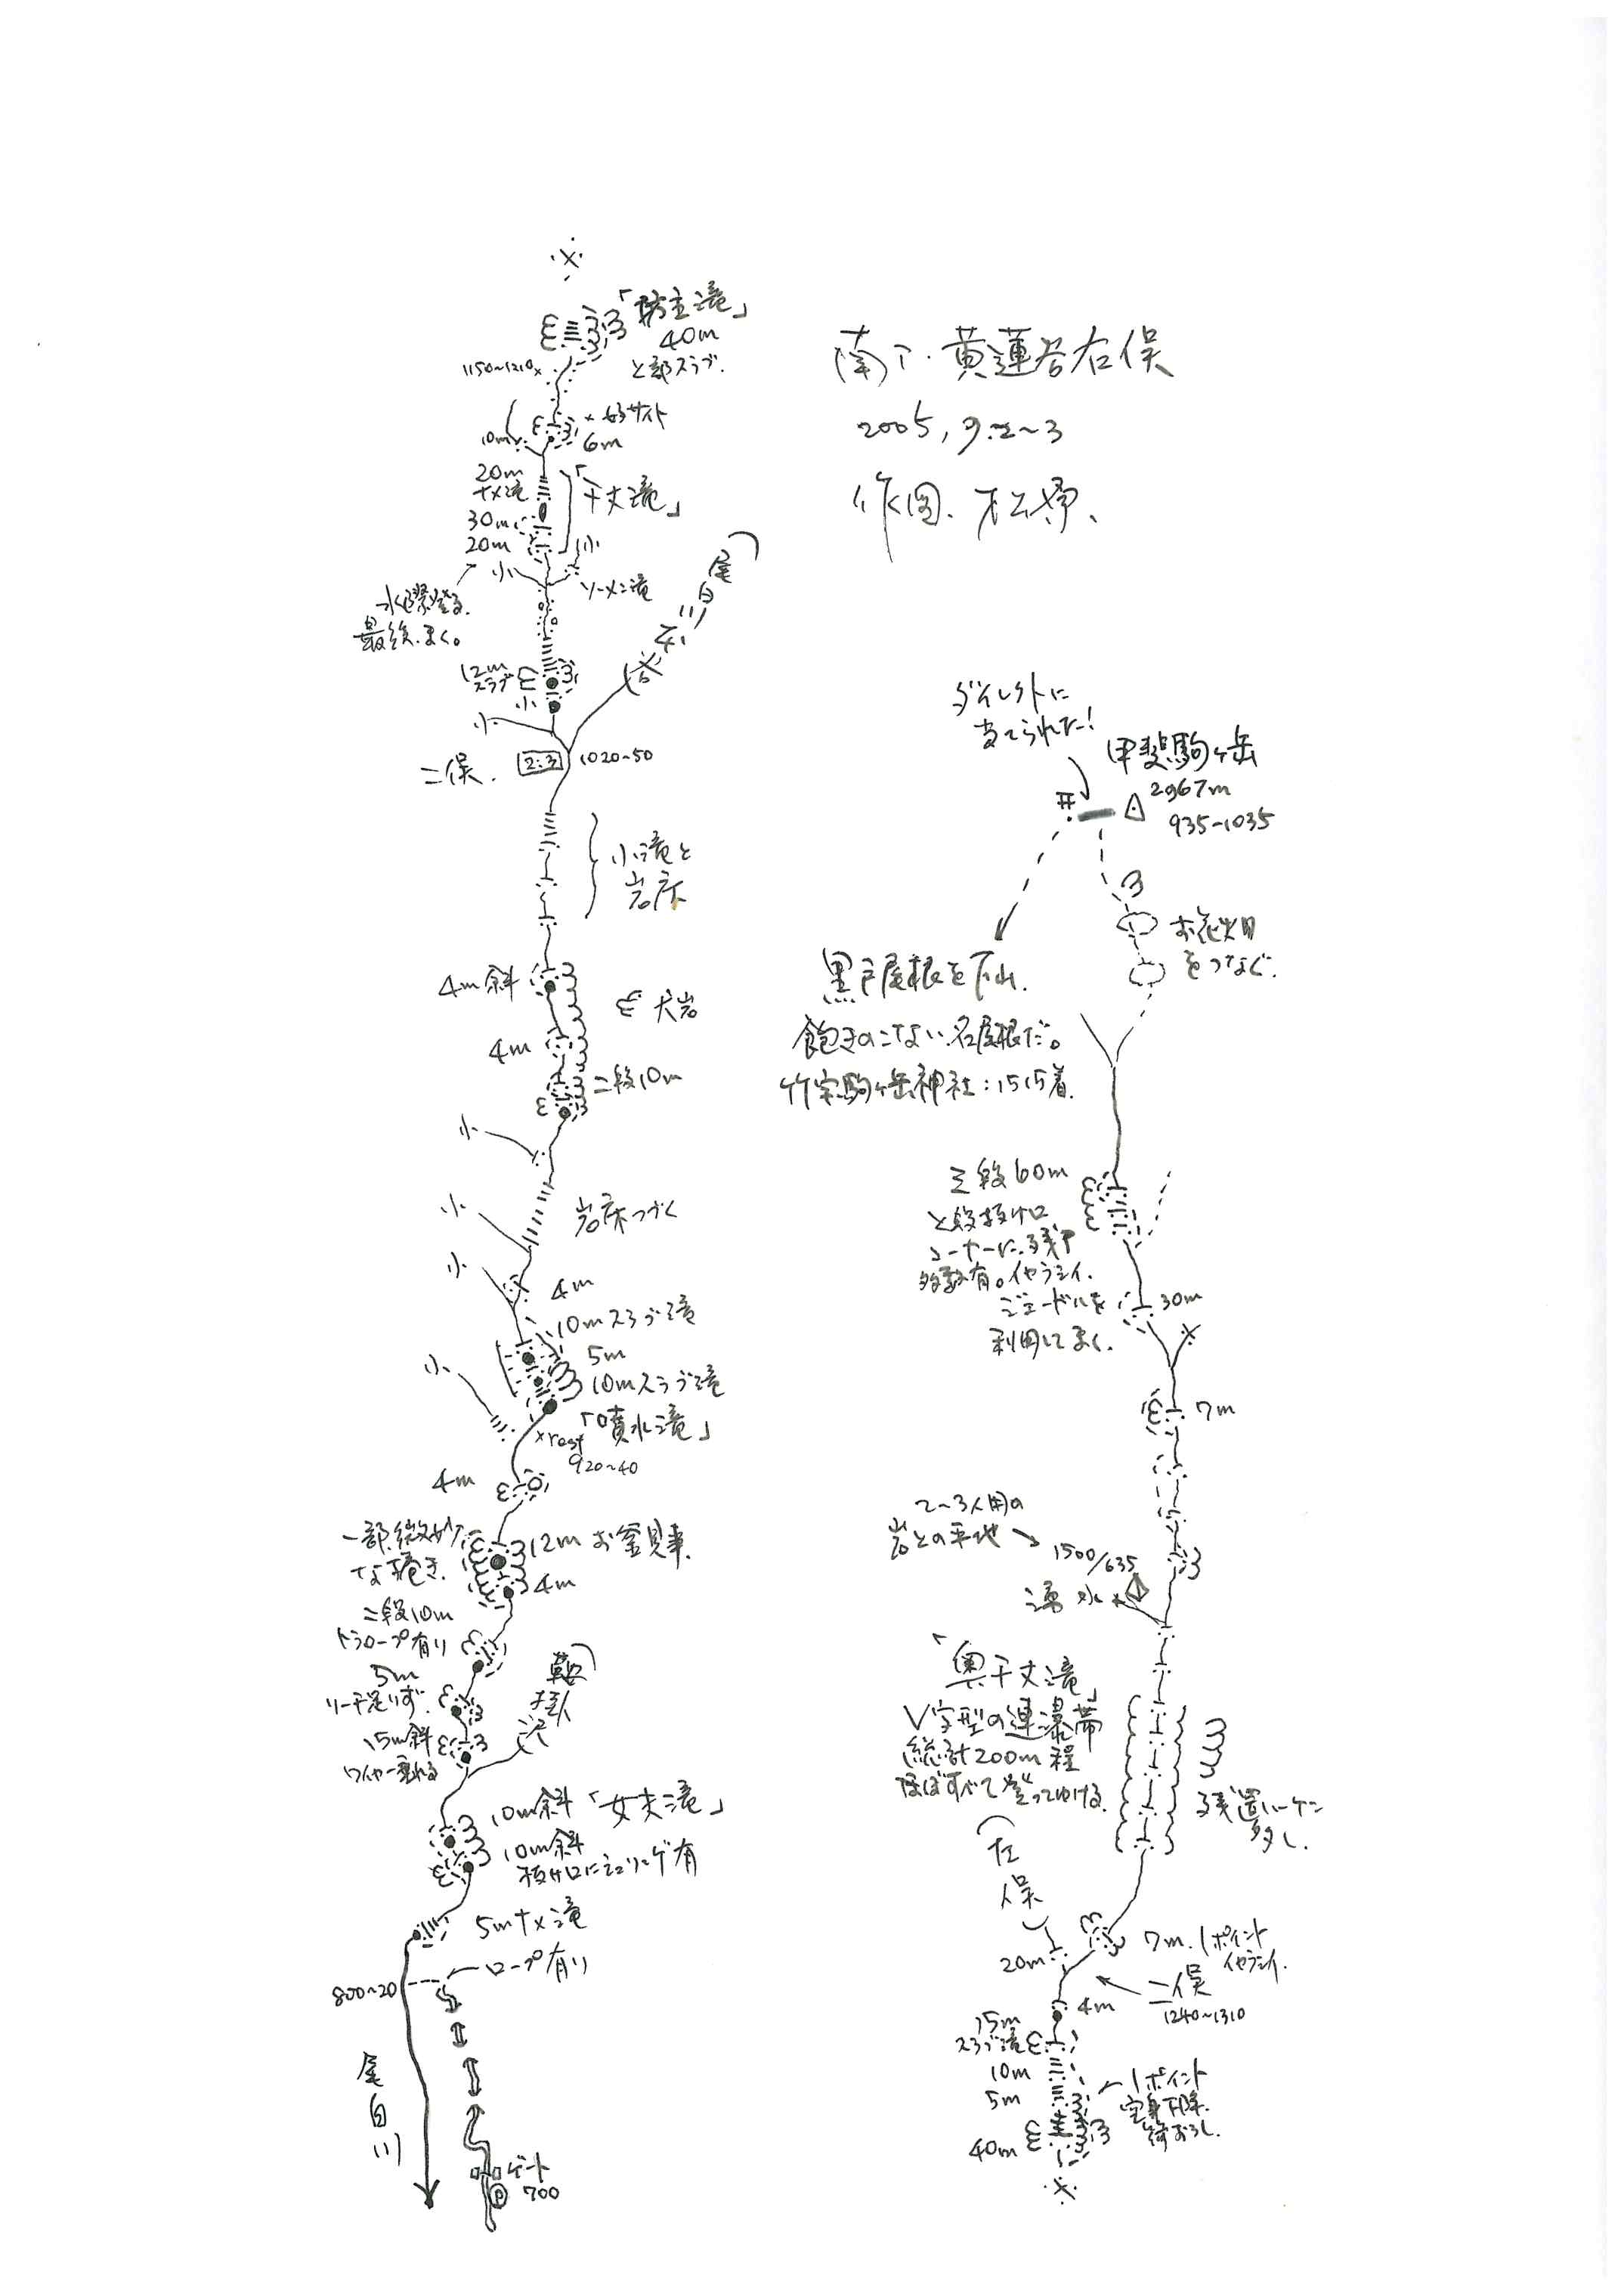 「坊主滝」
40m
上部スラブ.
1150~1210×
×好サイト
10m
6m
20m
ナメ滝
「千丈滝」
30m
20m
小
小
ソーメン滝
水際登る.
最後.まく。
尾白川
本
谷
12m
スラブ
小
小
二俣.
2:3
1020~50
小滝と
岩床
4m斜
大岩
4m
二段10m
小
小
岩床つづく
小
4m
10mスラブ滝
5m
10mスラブ滝
小
「噴水滝」
×rest
920~40
4m
一部.微妙
な巻き.
12mお釜見事.
4m
二段10m
トラロープ有り
5m
リーチ足りず.
鞍
掛
沢
15m斜
ワイヤー垂れる
10m斜「女夫滝」
10m斜
抜け口にシュリンゲ有
5mナメ滝
ロープ有り
800~20
尾
白
川
ゲート
P
700
南ア・黄蓮谷右俣
2005,9.2~3
作図.松澤、
ダイレクトに
当てられた!
甲斐駒ヶ岳
2967m
935-1035
お花畑
をつなぐ.
黒戸尾根を下山.
飽きのこない名尾根だ。
竹宇駒ヶ岳神社:1515着.
三段60m
上段抜け口
コーナーに.残ハ
多数有。イヤラシイ.
ジェードルを
利用してまく.
30m
7m
2~3人用の
岩上の平地
1500/635
湧水
「奥千丈滝」
V字型の連瀑帯
総計200m程
ほぼすべて登ってゆける.
残置ハーケン
多し.
左
俣
20m
7m.1ポイント
イヤラシイ.
二俣
1240~1310
4m
15m
スラブ滝
10m
5m
1ポイント
空身下降.
荷おろし.
40m